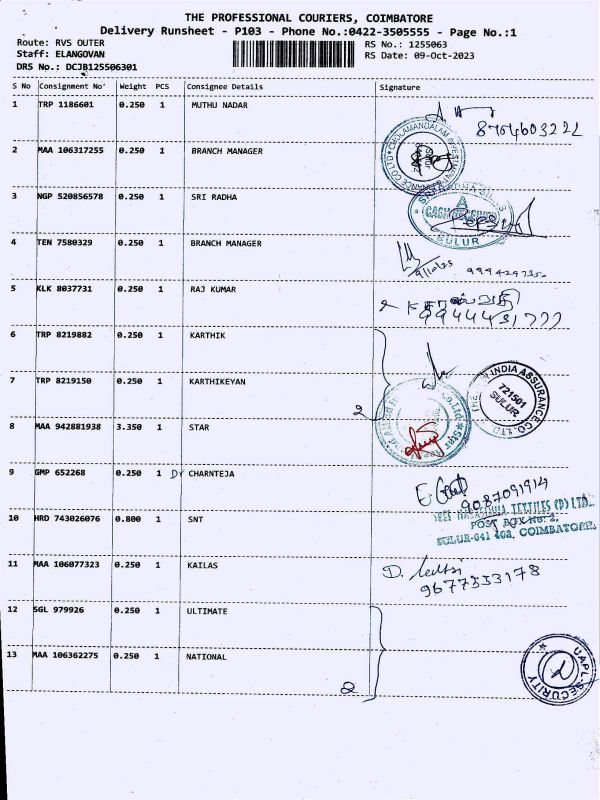 THE PROFESSIONAL COURIERS, COIMBATORE
Delivery Runsheet - P103 - Phone No.:0422-3505555 - Page No.:1
Route: RVS OUTER
Staff: ELANGOVAN
DRS No.: DCJB125506301
RS No.: 1255063
RS Date: 09-Oct-2023
S No Consignment No' Weight PCS Consignee Details Signature
1 TRP 1186601 0.250 1 MUTHU NADAR
2 MAA 106317255 0.250 1 BRANCH MANAGER
CHOLAMANDALAM INVESTMENT
3 NGP 520856578 0.250 1 SRI RADHA
SULUR
4 TEN 7580329 0.250 1 BRANCH MANAGER
9/10/23
5 KLK 8037731 0.250 1 RAJ KUMAR
6 TRP 8219882 0.250 1 KARTHIK
7 TRP 8219150 0.250 1 KARTHIKEYAN
2
INDIA ASSURANCE CO. LTD.
721501
SULUR
8 MAA 942881938 3.350 1 STAR
9 GMP 652268 0.250 1 DY CHARNTEJA
9087091914
10 HRD 743026076 0.800 1 SNT
TEXTILES (P) LTD.
POST BOX No: 2,
SULUR-641 402. COIMBATORE.
11 MAA 106077323 0.250 1 KAILAS
9677353178
12 SGL 979926 0.250 1 ULTIMATE
13 MAA 106362275 0.250 1 NATIONAL
2
UAPL-SECURITY